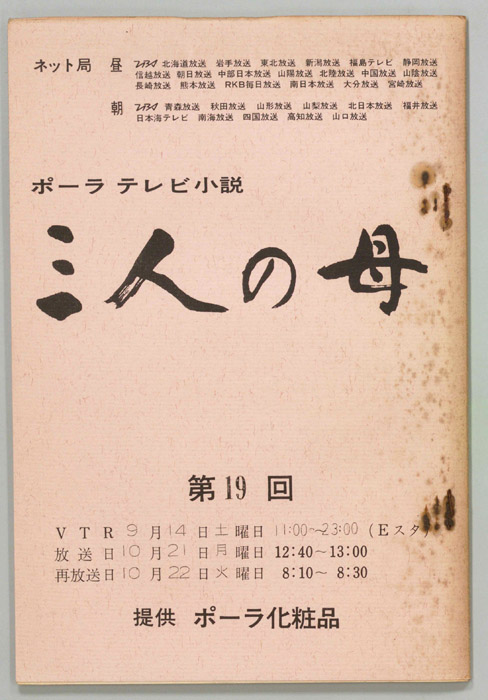 ネット局 昼 TBS 北海道放送 岩手放送 東北放送 新潟放送 福島テレビ 静岡放送
信越放送 朝日放送 中部日本放送 山陽放送 北陸放送 中国放送 山陰放送
長崎放送 熊本放送 RKB毎日放送 南日本放送 大分放送 宮崎放送
朝 TBS 青森放送 秋田放送 山形放送 山梨放送 北日本放送 福井放送
日本海テレビ 南海放送 四国放送 高知放送 山口放送
ポーラ テレビ小説
三人の母
第19回
VTR 9月14日土曜日 11:00~23:00 (Eスタ)
放送日10月21日月曜日 12:40~13:00
再放送日10月22日火曜日 8:10~ 8:30
提供 ポーラ化粧品